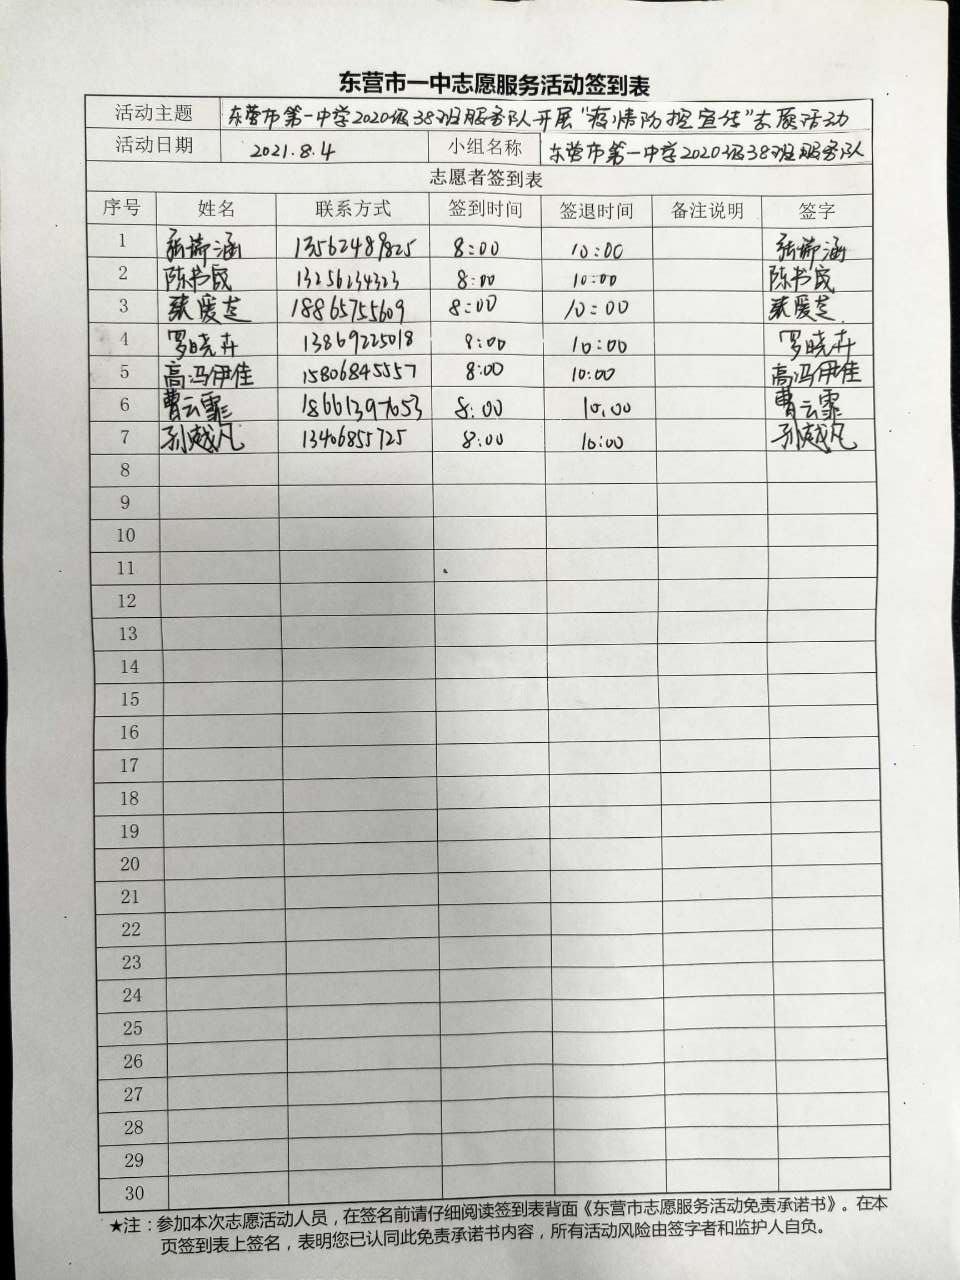 东营市一中志愿服务活动签到表
活动主题 东营市第一中学2020级38班服务队开展"疫情防控宣传"志愿活动
活动日期 2021.8.4 小组名称 东营市第一中学2020级38班服务队
志愿者签到表
序号 姓名 联系方式 签到时间 签退时间 备注说明 签字
1 张瀞涵 13562489825 8:00 10:00 张瀞涵
2 陈书晟 13256234323 8:00 10:00 陈书晟
3 18865755609 8:00 10:00
4 罗晓卉 13869225018 8:00 10:00 罗晓卉
5 高冯伊佳 15806845557 8:00 10:00 高冯伊佳
6 曹云霏 18661397053 8:00 10:00 曹云霏
7 孙越凡 13406855725 8:00 10:00 孙越凡
8
9
10
11
12
13
14
15
16
17
18
19
20
21
22
23
24
25
26
27
28
29
30
★注：参加本次志愿活动人员，在签名前请仔细阅读签到表背面《东营市志愿服务活动免责承诺书》。在本
页签到表上签名，表明您已认同此免责承诺书内容，所有活动风险由签字者和监护人自负。